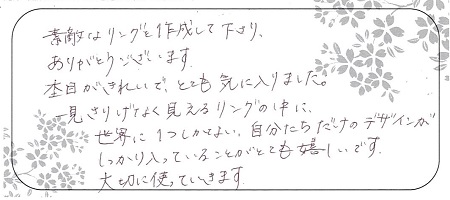 素敵なリングを作成して下さり、
ありがとうございます。
杢目がきれいで、とても気に入りました。
一見さりげなく見えるリングの中に、
世界に1つしかない、自分たちだけのデザインが
しっかり入っていることがとても嬉しいです。
大切に使っていきます。